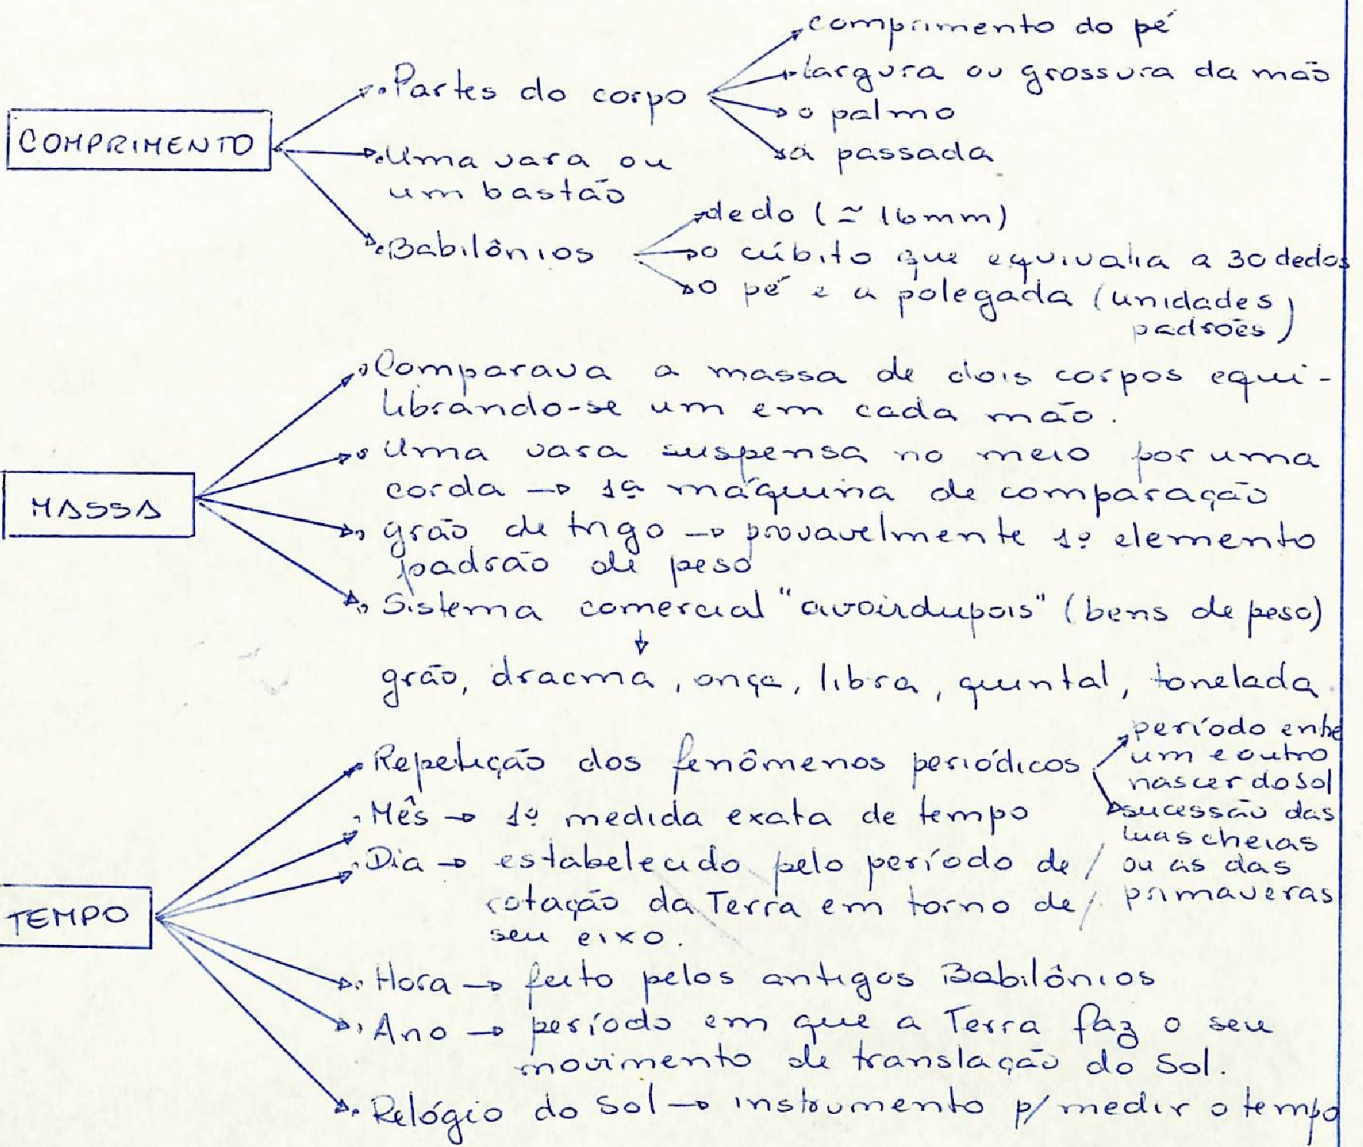 COMPRIMENTO
Partes do corpo
comprimento do pé
largura ou grossura da mão
o palmo
a passada
Uma vara ou
um bastão
Babilônios
dedo (≃ 16mm)
o cúbito que equivalia a 30 dedos
o pé e a polegada (unidades
padrões)
MASSA
Comparava a massa de dois corpos equi-
librando-se um em cada mão.
Uma vara suspensa no meio por uma
corda → 1ª máquina de comparação
grão de trigo → provavelmente 1º elemento
padrão de peso
Sistema comercial "avoirdupois" (bens de peso)
↓
grão, dracma, onça, libra, quintal, tonelada.
TEMPO
Repetição dos fenômenos periódicos
período entre
um e outro
nascer do sol
sucessão das
luas cheias
ou as das
primaveras
Mês → 1º medida exata de tempo
Dia → estabelecido pelo período de
rotação da Terra em torno de
seu eixo.
Hora → feito pelos antigos Babilônios
Ano → período em que a Terra faz o seu
movimento de translação do Sol.
Relógio do Sol → instrumento p/ medir o tempo